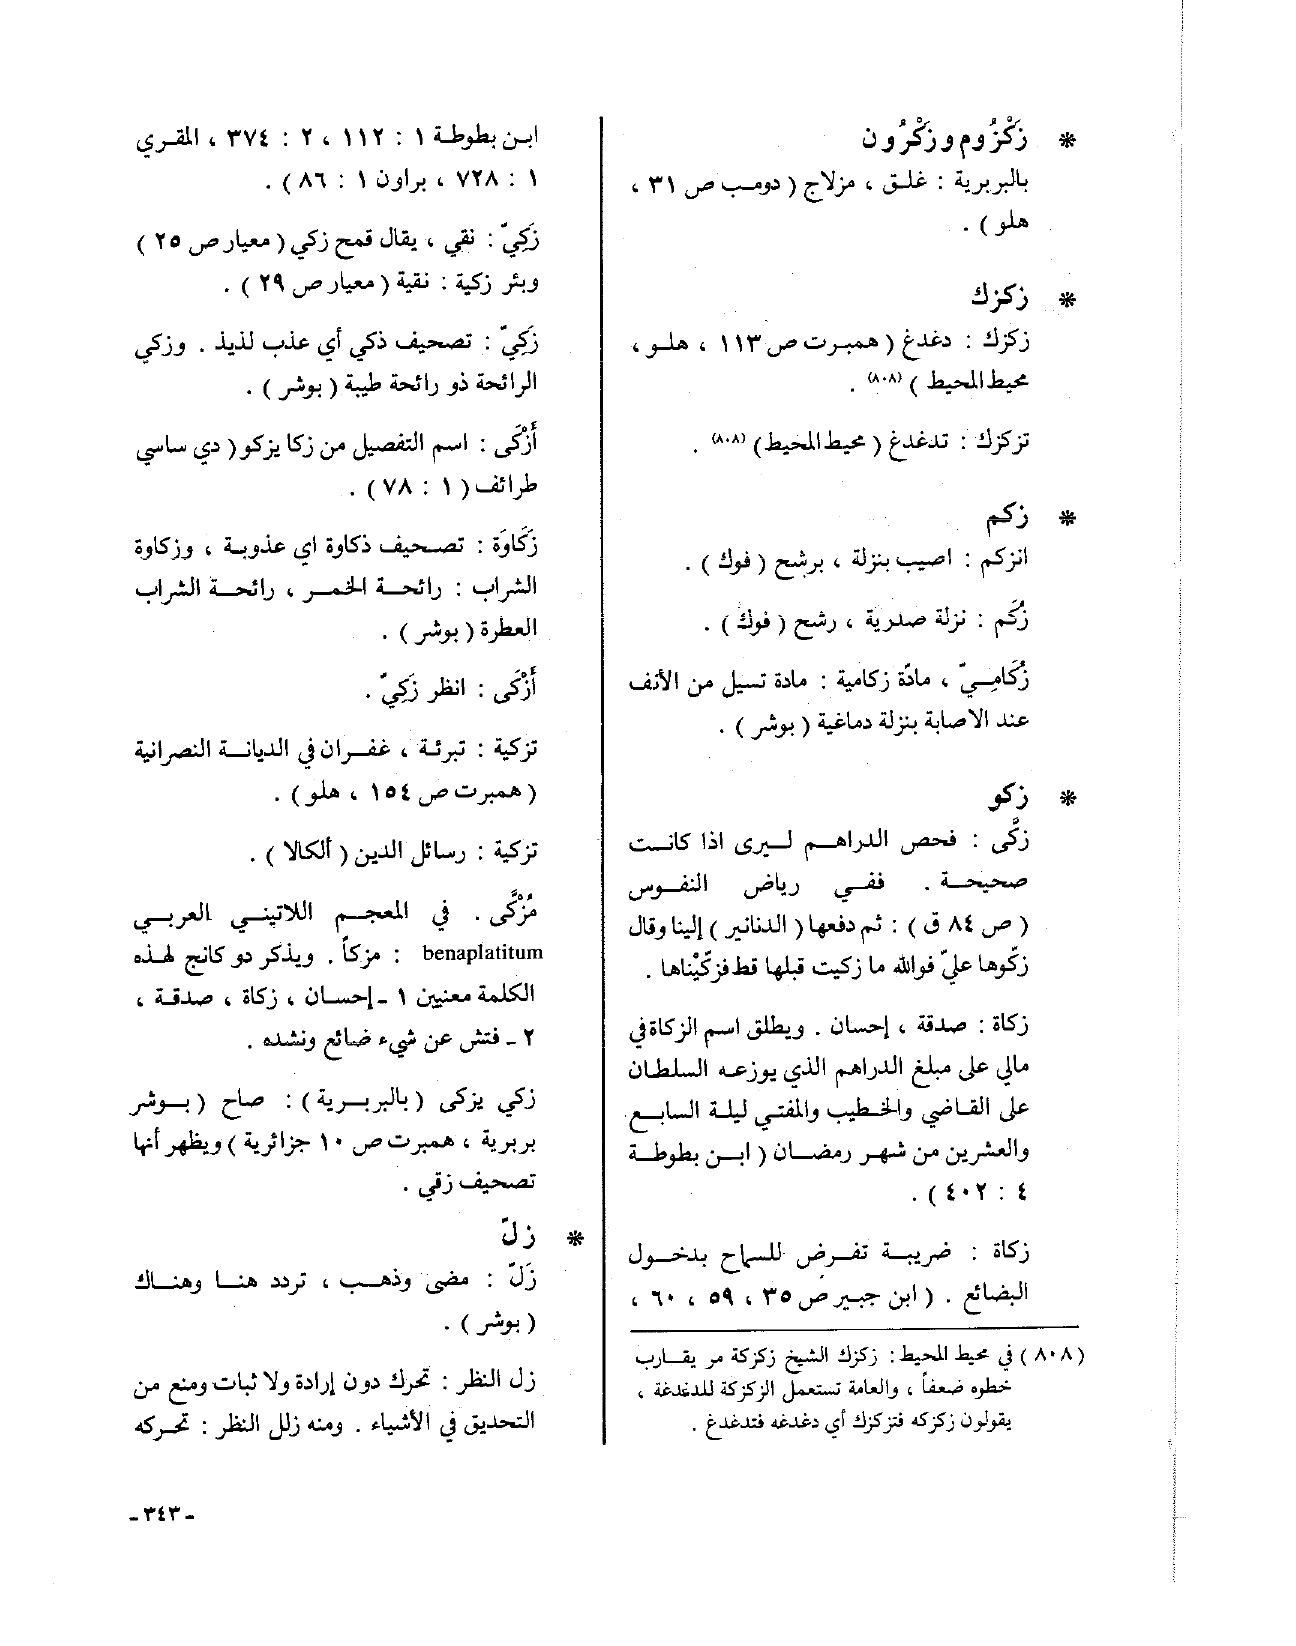 * زَكْرُوم وزَكْرُون
بالبربرية : غلق ، مزلاج ( دومب ص ٣١ ،
هلو ) .
* زكزك
زكزك : دغدغ ( همبرت ص ١١٣ ، هلو ،
محيط المحيط ) (٨٠٨) .
تزكزك : تدغدغ ( محيط المحيط ) (٨٠٨) .
* زكم
انزكم : اصيب بنزلة ، برشح ( فوك ) .
زُكَم : نزلة صدرية ، رشح ( فوك ) .
زُكَامِيّ ، مادّة زكامية : مادة تسيل من الأنف
عند الاصابة بنزلة دماغية ( بوشر ) .
* زكو
زَكَّى : فحص الدراهم ليرى اذا كانت
صحيحة . ففي رياض النفوس
( ص ٨٤ ق ) : ثم دفعها ( الدنانير ) إلينا وقال
زكّوها عليّ فوالله ما زكيت قبلها قط فزكّيْناها .
زكاة : صدقة ، إحسان . ويطلق اسم الزكاة في
مالي على مبلغ الدراهم الذي يوزعه السلطان
على القاضي والخطيب والمفتي ليلة السابع
والعشرين من شهر رمضان ( ابن بطوطة
٤ : ٤٠٢ ) .
زكاة : ضريبة تفرض للسماح بدخول
البضائع . ( ابن جبير ص ٣٥ ، ٥٩ ، ٦٠ ،
( ٨٠٨ ) في محيط المحيط : زكزك الشيخ زكزكة مر يقارب
خطوه ضعفاً ، والعامة تستعمل الزكزكة للدغدغة ،
يقولون زكزكه فتزكزك أي دغدغه فتدغدغ .
ابن بطوطة ١ : ١١٢ ، ٢ : ٣٧٤ ، المقري
١ : ٧٢٨ ، براون ١ : ٨٦ ) .
زَكِيّ : نقي ، يقال قمح زكي ( معيار ص ٢٥ )
وبئر زكية : نقية ( معيار ص ٢٩ ) .
زَكِيّ : تصحيف ذكي أي عذب لذيذ . وزكي
الرائحة ذو رائحة طيبة ( بوشر ) .
أَزْكَى : اسم التفصيل من زكا يزكو ( دي ساسي
طرائف ( ١ : ٧٨ ) .
زَكَاوَة : تصحيف ذكاوة اي عذوبة ، وزكاوة
الشراب : رائحة الخمر ، رائحة الشراب
العطرة ( بوشر ) .
أَزْكَى : انظر زَكِيّ .
تزكية : تبرئة ، غفران في الديانة النصرانية
( همبرت ص ١٥٤ ، هلو ) .
تزكية : رسائل الدين ( ألكالا ) .
مُزْكًى . في المعجم اللاتيني العربي
benaplatitum : مزكاً . ويذكر دو كانج لهذه
الكلمة معنيين ١ - إحسان ، زكاة ، صدقة ،
٢ - فتش عن شيء ضائع ونشده .
زكي يزكى ( بالبربرية ) : صاح ( بوشر
بربرية ، همبرت ص ١٠ جزائرية ) ويظهر أنها
تصحيف زقي .
* زلّ
زَلّ : مضى وذهب ، تردد هنا وهناك
( بوشر ) .
زل النظر : تحرك دون إرادة ولا ثبات ومنع من
التحديق في الأشياء . ومنه زلل النظر : تحركه
- ٣٤٣ -